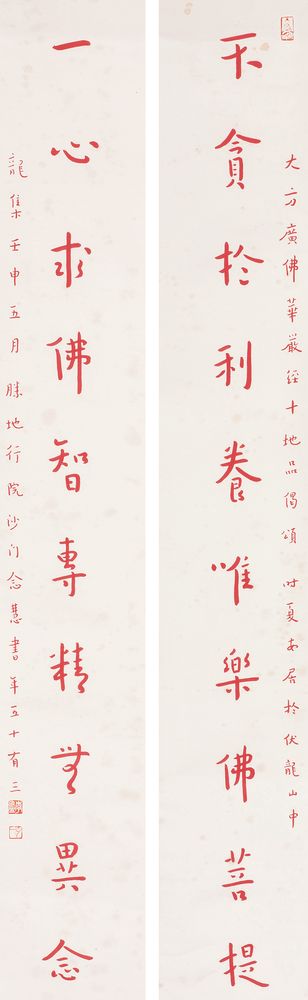 大方廣佛華嚴經十地品偈頌 時夏安居於伏龍山中
不貪於利養唯樂佛菩提
一心求佛智專精無異念
龍集壬申五月勝地行院沙门念慧書年五十有三